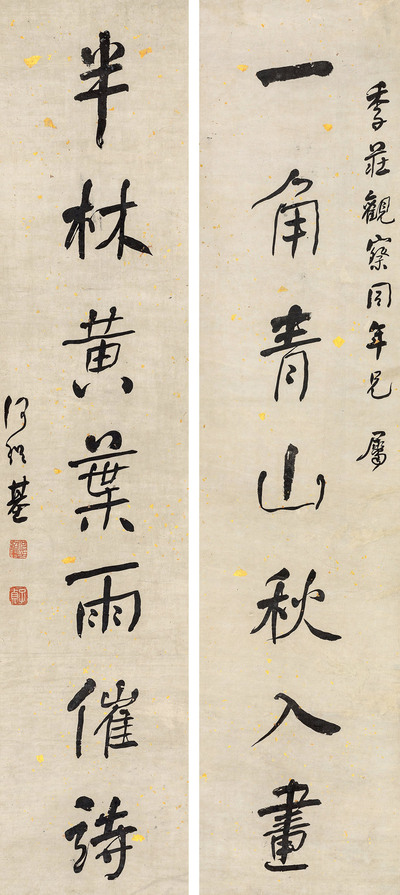 季莊觀察同年兄 屬
一角青山秋入畫
半林黄葉雨催詩
何紹基